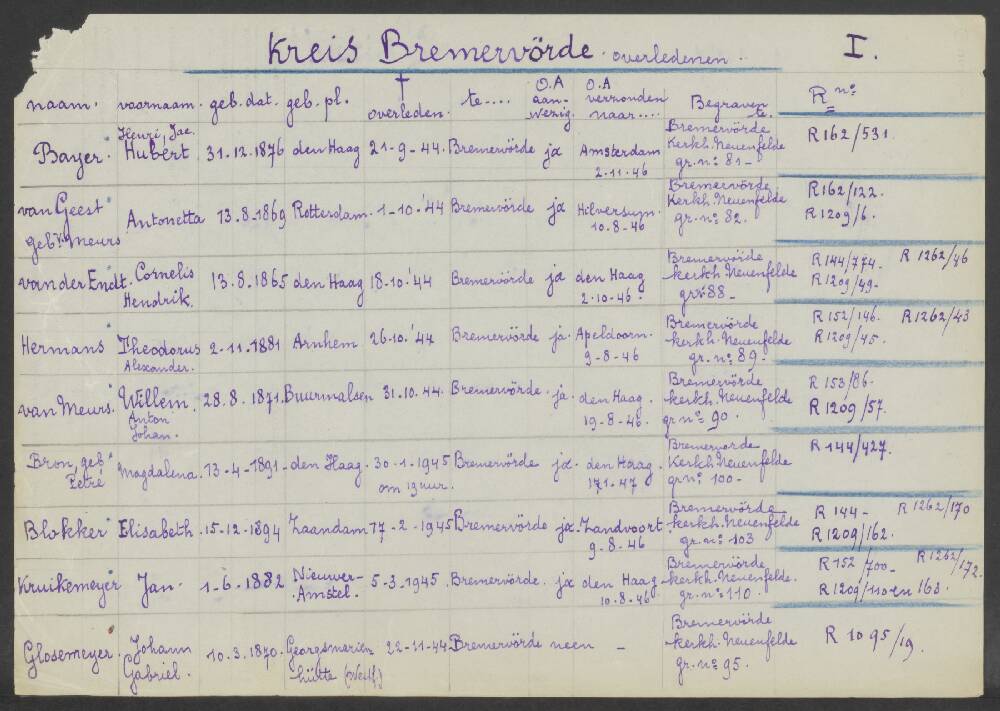 Kreis Bremervörde. overledenen. I.
naam. voornaam. geb. dat. geb. pl. † overleden. te.... O.A aanwezig. O.A verzonden naar.... Begraven te. R nos
Bayer. Henri, Jac. Hubert. 31.12.1876 den Haag 21-9-44. Bremervörde ja Amsterdam 2.11.46 Bremervörde Kerkh. Neuenfelde gr. no: 81- R162/531.
van Geest geb. v. Meurs Antonetta 13.8.1869 Rotterdam. 1-10.'44 Bremervörde ja Hilversum. 10.8-46 Bremervörde Kerkh. Neuenfelde gr. no: 82. R162/122. R1209/6.
van der Endt. Cornelis Hendrik. 13.8.1865 den Haag 18-10.'44 Bremervörde ja den Haag 2-10-46. Bremervörde kerkh. Neuenfelde gr. no: 88- R144/774. R1262/46 R1209/49-
Hermans Theodorus Alexander. 2-11.1881 Arnhem 26.10.'44 Bremervörde ja. Apeldoorn. 9-8-46 Bremervörde kerkh. Neuenfelde gr. no: 89- R152/146. R1262/43 R1209/45.
van Meurs. Willem. Anton Johan. 28.8.1871. Buurmalsen 31.10.44. Bremervörde ja. den Haag. 19-8-46. Bremervörde kerkh. Neuenfelde gr. no: 90. R153/86. R1209/57.
Bron, geb. Petré Magdalena. 13-4-1891- den Haag. 30-1-1945 om 19 uur. Bremervörde ja. den Haag. 17.1-47 Bremervörde Kerkh. Neuenfelde gr. no: 100- R144/427.
Blokker Elisabeth. 15-12-1894 Zaandam 17-2-1945 Bremervörde ja. Zandvoort. 9-8-46 Bremervörde kerkh. Neuenfelde gr. no: 103 R144- R1262/170 R1209/162.
Kruikemeyer Jan. 1-6.1882 Nieuwer-Amstel. 5-3.1945. Bremervörde. ja den Haag 10.8-46 Bremervörde kerkh. Neuenfelde. gr. no: 110. R152/700- R1262/172. R1209/110 en 163.
Glosemeyer. Johann Gabriel. 10.3.1870. Georgsmarienhütte (Westf.) 22-11-44. Bremervörde neen - Bremervörde kerkh. Neuenfelde gr. no: 95. R1095/19.